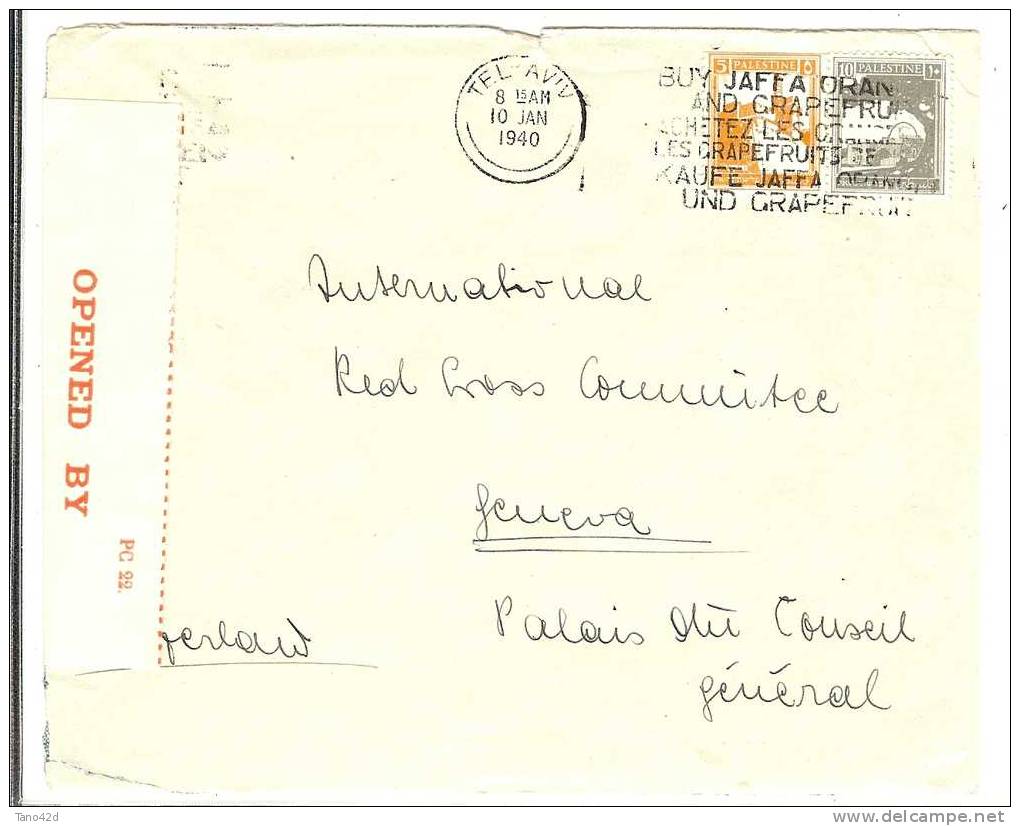 TEL-AVIV
8 15 AM
10 JAN
1940
5 PALESTINE ٥
10 PALESTINE ١٠
BUY JAFFA ORAN
AND GRAPEFRU
ACHETEZ LES ORAN
LES GRAPEFRUITS DE
KAUFE JAFFA ORAN
UND GRAPEFRUI
OPENED BY
PC 22.
International
Red Cross Committee
Geneva
Palais du Conseil
général
zerland
Tano42d
delcampe.net